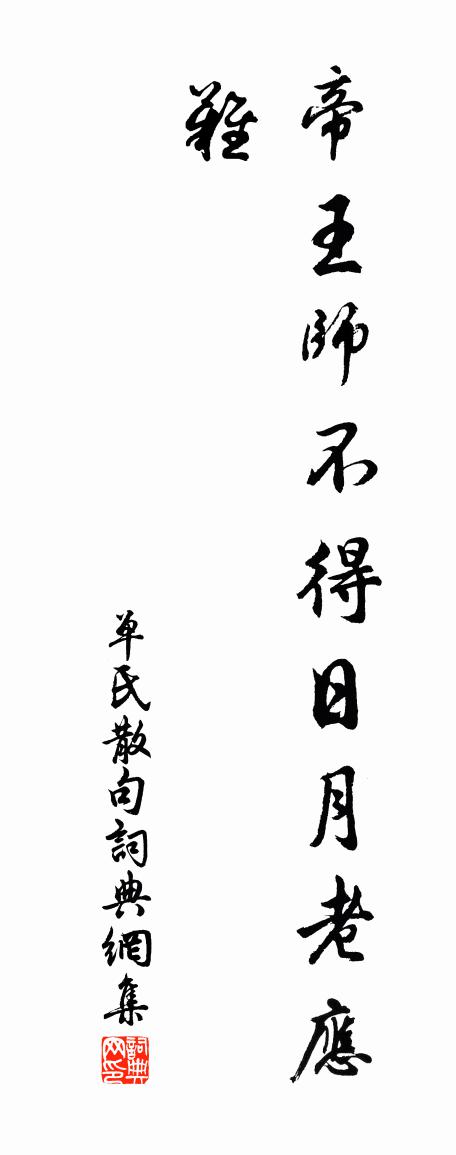 帝王師不得日月老應
難
单氏散句詞典網集
詞典
网印